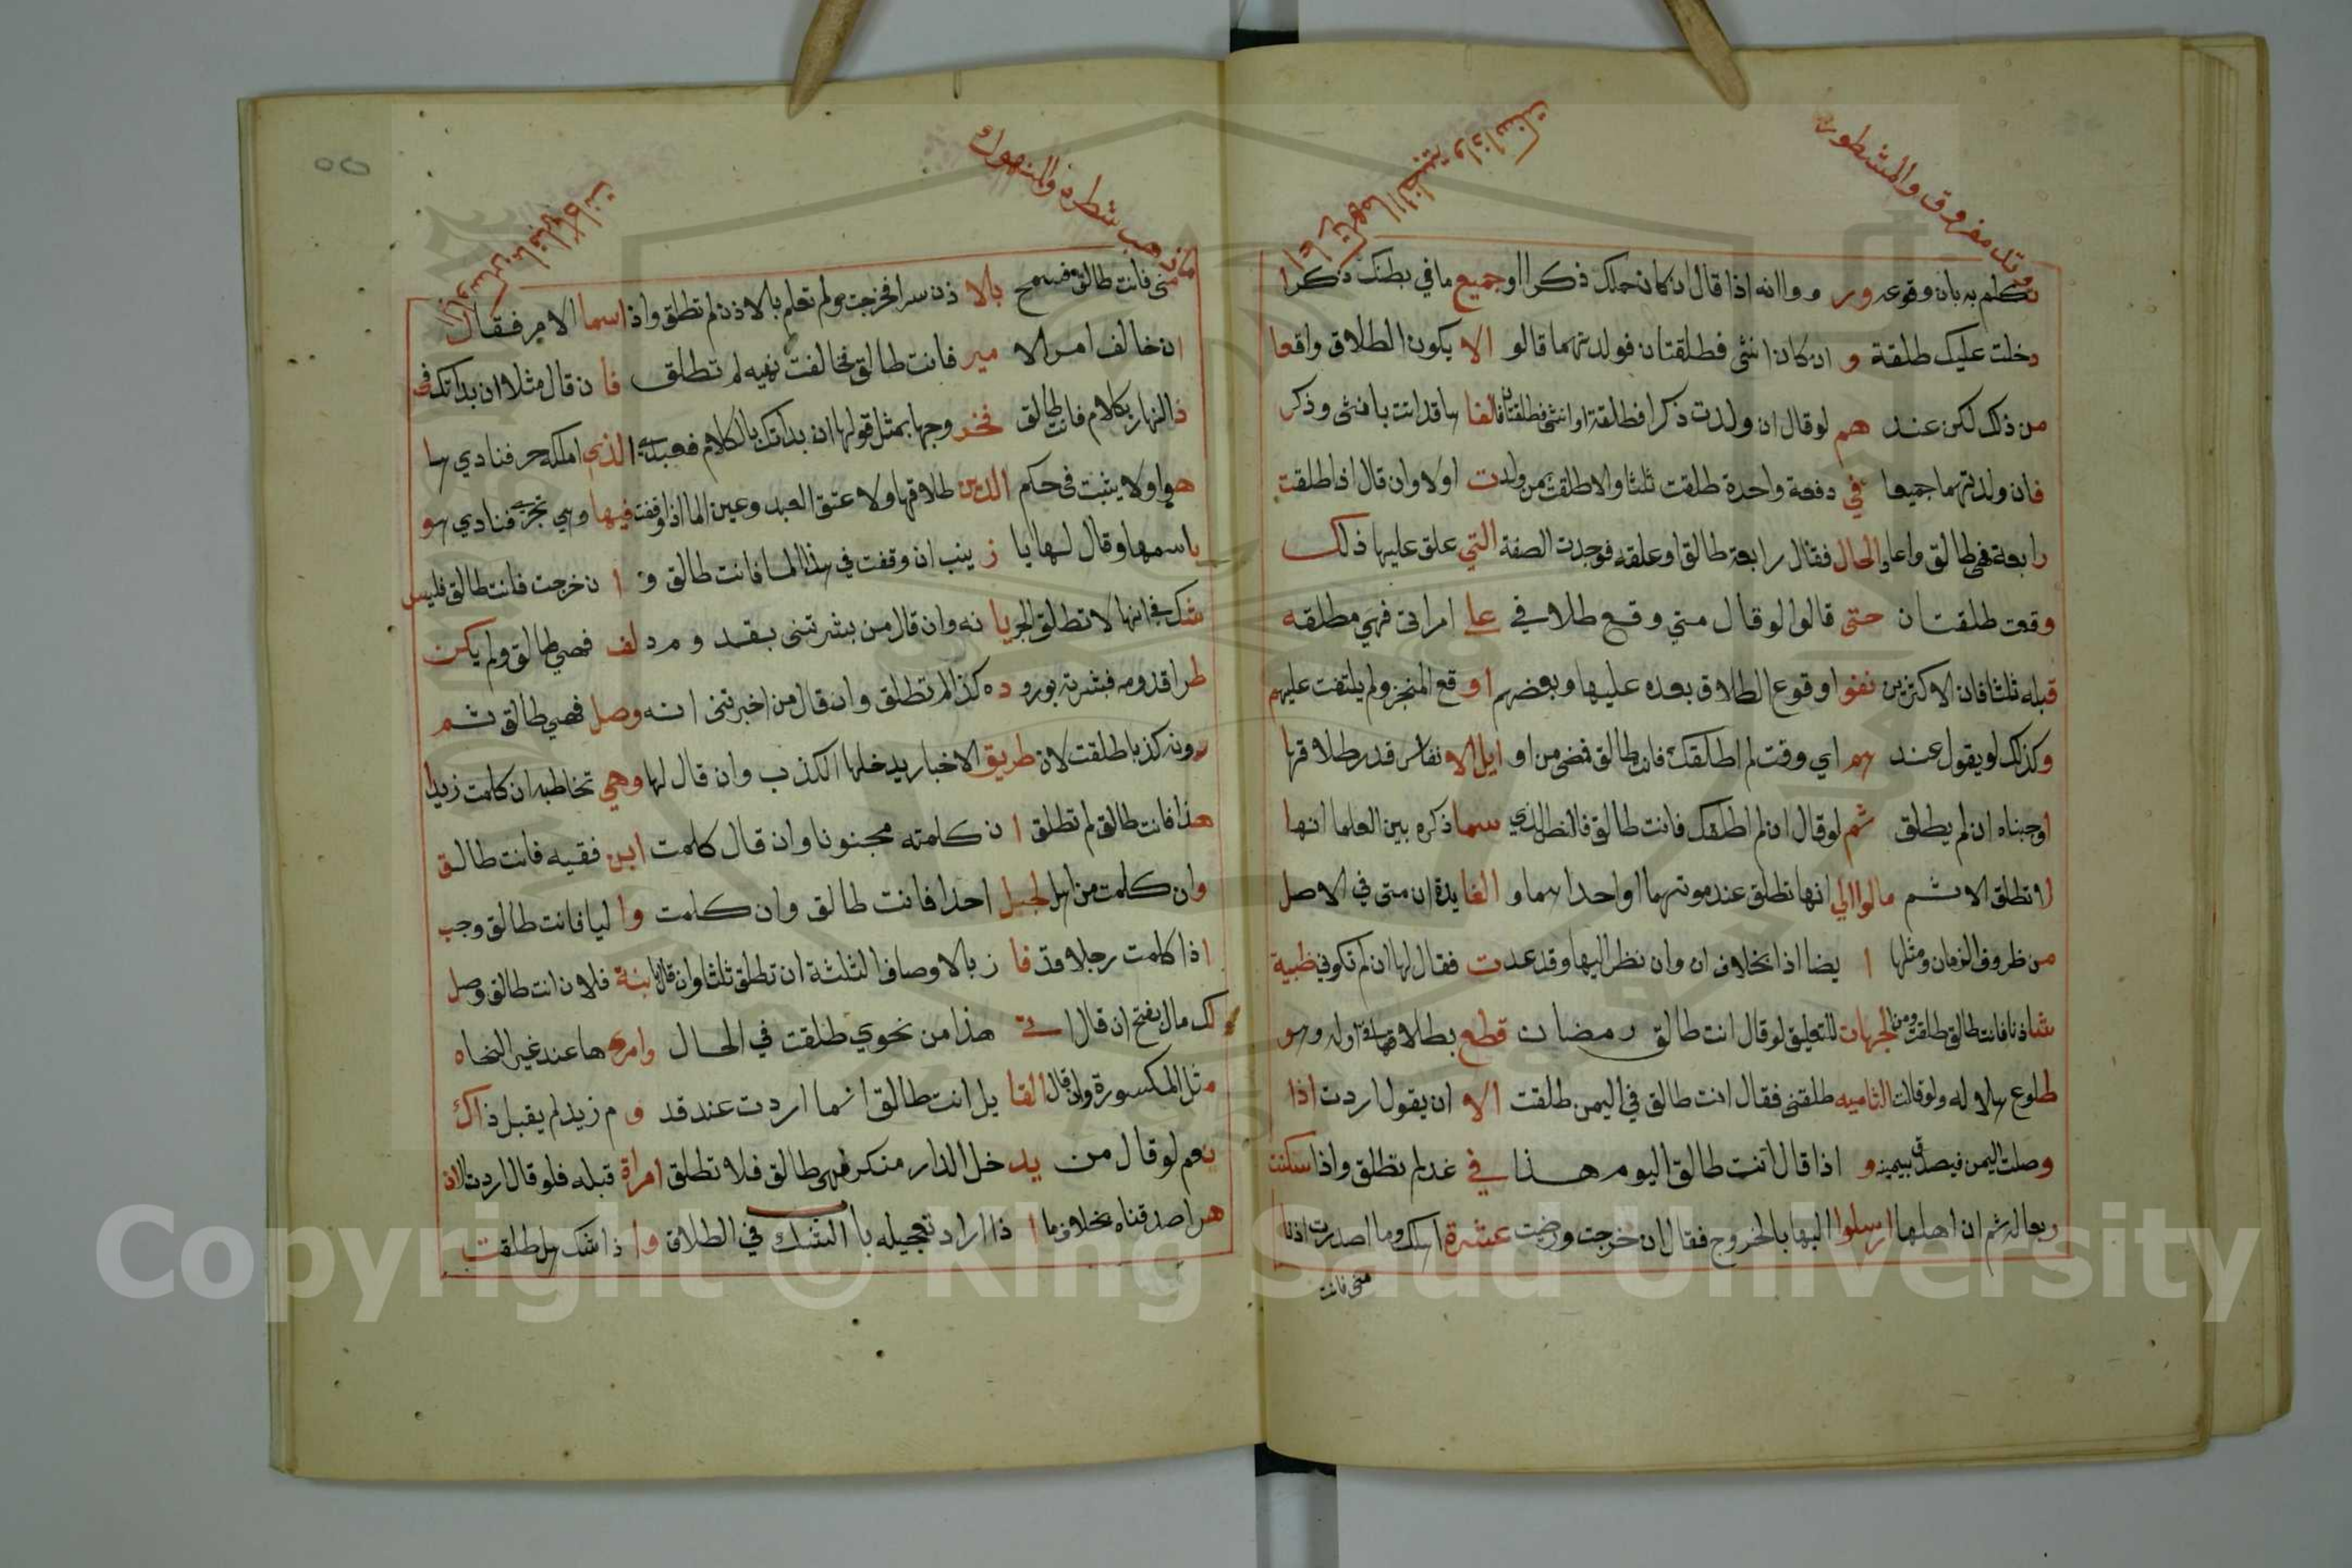 وتك مفروق والمشطور
تكلم به بان وقوعه ور ووا انه اذا قال ان كان حملك ذكرا او جميع ما في بطنك ذكرا
دخلت عليك طلقة و ان كان انثى فطلقتان فولدتهما قالو الا يكون الطلاق واقعا
من ذلك لكن عند هم لو قال ان ولدت ذكرا فطلقة او انثى فطلقتان فالفا ها قد اتت بانثى وذكر
فان ولدتهما جميعا في دفعة واحدة طلقت ثلثا والا طلقت بمن ولدت اولا وان قال اذا طلقت
رابعة فهي طالق واعلى الحال فقال رابعة طالق او علقه فوجدت الصفة التي علق عليها ذلك
وقعت طلقتان حتى قالوا لو قال متي وقع طلاقي على امراتي فهي مطلقه
قبله ثلثا فان الاكثرين نفوا وقوع الطلاق بعده عليها وبعضهم اوقع المنجز ولم يلتفت عليهم
وكذلك لو يقول عند هم اي وقت لم اطلقك فانت طالق فمضى من او ايل الا نفاس قدر طلاقها
اوجبناه ان لم يطلق ثم لو قال ان لم اطلقك فانت طالق فالنظر الذي سما ذكره بين العلما انها
لا تطلق الا ثم مالوا الي انها تطلق عند موتهما او احداهما و الفا يدة ان متى في الاصل
من ظروف الزمان ومثلها ا يضا اذا بخلاف ان وان نظر اليها وقد عدت فقال لها ان لم تكوني ظبية
شاذنا فانت طالق طلقت ومن الجهات للتعليق لو قال انت طالق رمضان قطع بطلاقها في اوله وهو
طلوع هلاله ولو قالت الثاميه طلقني فقال انت طالق في اليمن طلقت الا ان يقول اردت اذا
وصلت اليمن فيصدق بيمينه و اذا قال انت طالق اليوم هذا في غد لم تطلق واذا سكنت
ربعا له ثم ان اهلها ارسلوا اليها بالخروج فقال ان خرجت ورضيت عشرة اهلك وما اصدرت اذنا
مني فانت
ما ذهب شطره والمنهوك
مني فانت طالق فسمح بالا ذن سرا فخرجت ولم تعلم بالاذن لم تطلق واذا سما الامر فقال
ان خالف امر الا مير فانت طالق فخالفت نهيه لم تطلق فا ن قال مثلا ان بداتك في
ذا النهار بكلام فانت طالق فخد وجها بمثل قولها ان بداتك بالكلام فعبده الذي املكه حر فنادي ها
هو اولا يثبت في حكم الدين طلاقها ولا عتق العبد وعين الما اذا وقفت فيها وهي تجري فنادي هو
باسمها وقال لها يا ز ينب ان وقفت في هذا الما فانت طالق و ا ن خرجت فانت طالق فليس
شك في انها لا تطلق الجر يا نه وان قال من بشرتني بقد وم دلف فهي طالق ولم يكن
طرا قدومه فبشرته بورو ده كذا لم تطلق وان قال من اخبرتني انه وصل فهي طالق ثم
رونه كذبا طلقت لان طريق الاخبار يدخلها الكذب وان قال لها وهي تخاطبه ان كلمت زيدا
هذا فانت طالق لم تطلق ا ن كلمته مجنونا وان قال كلمت ابن فقيه فانت طالق
وان كلمت من اهل الجبل احدا فانت طالق وان كلمت وا ليا فانت طالق وجب
اذا كلمت رجلا قد فا ز بالاوصاف الثلثة ان تطلق ثلثا وان قال يا بنة فلان انت طالق وصل
لك مال بفتح ان قال ا هذا من نحوي طلقت في الحال وامرى ها عند غير النحاه
مثل المكسورة وان قال القا يل انت طالق انما اردت عند قد و م زيد لم يقبل ذاك
نعم لو قال من يد خل الدار منكن فهي طالق فلا تطلق امراة قبله فلو قال اردت الان
هرا صدقناه بخلاف ما ا ذا اراد تعجيله با الشك في الطلاق وا ذا شك هل طلقت
Copyright © King Saud University